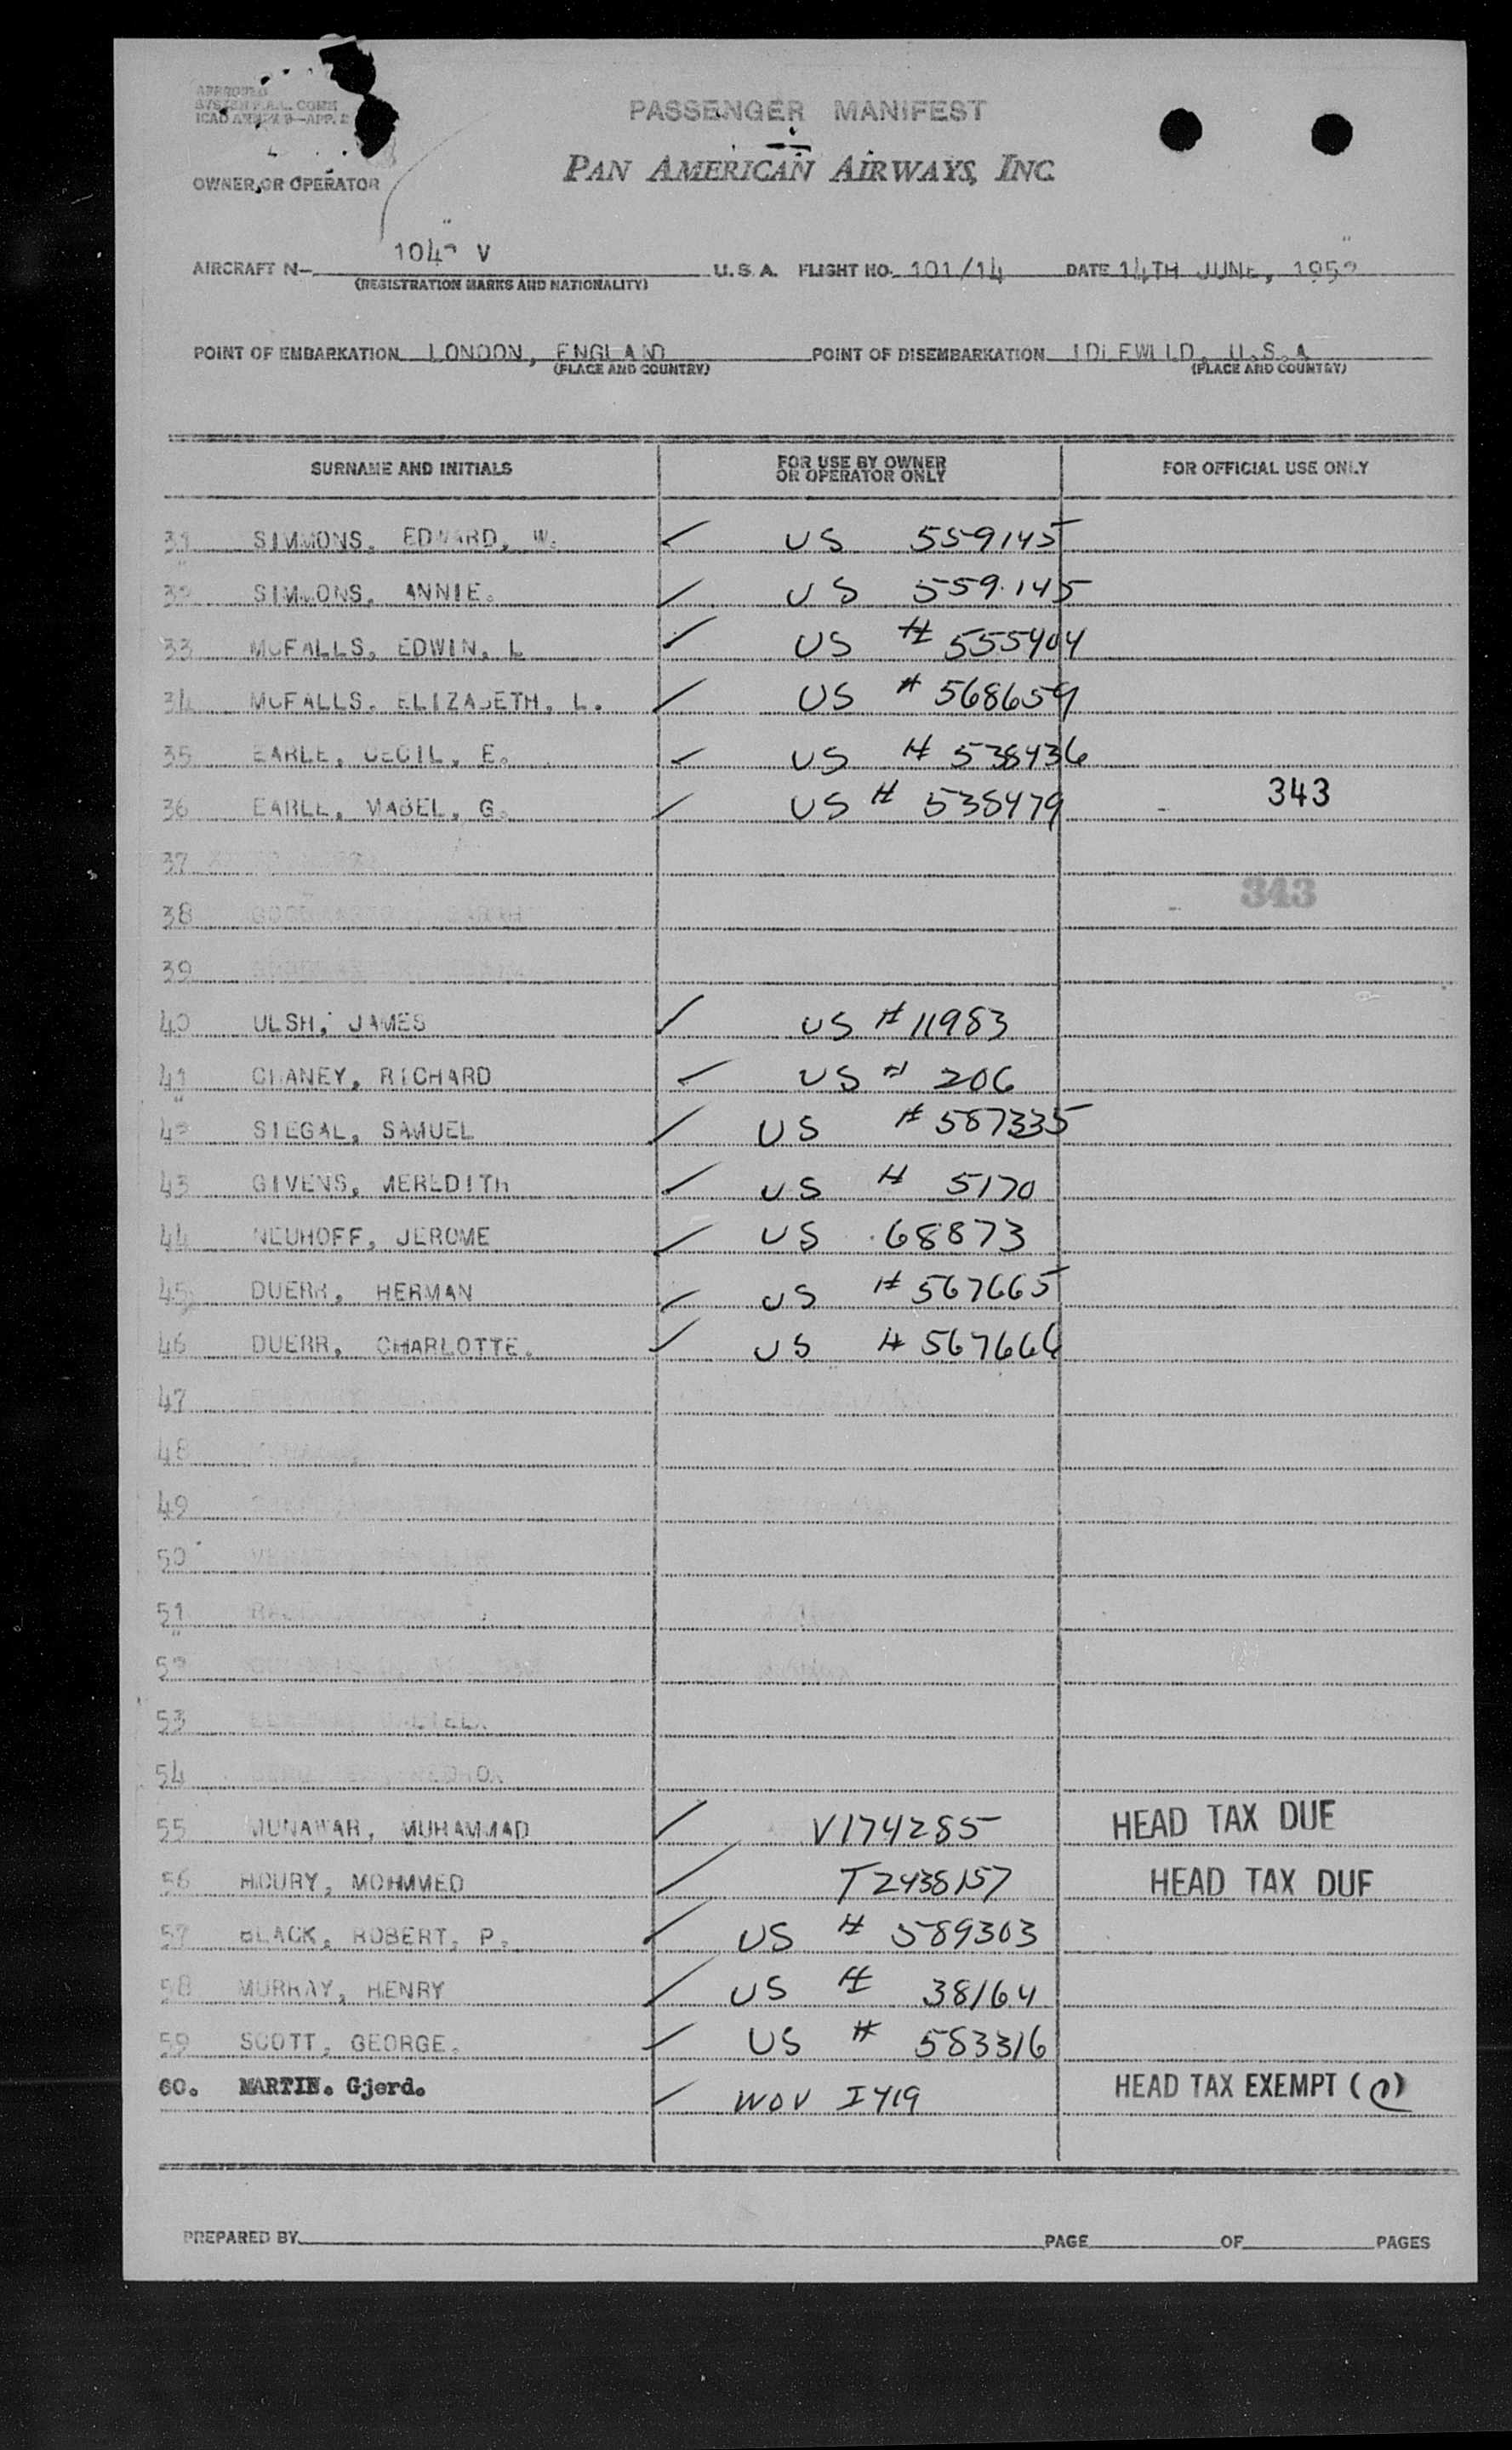 APPROVED
SYSTEM F.A.L. COMM
ICAO ANNEX 9—APP. 2
PASSENGER MANIFEST
PAN AMERICAN AIRWAYS, INC.
OWNER OR OPERATOR
AIRCRAFT N- 1042 V U.S.A. FLIGHT NO. 101/14 DATE 14TH JUNE, 1952
(REGISTRATION MARKS AND NATIONALITY)
POINT OF EMBARKATION LONDON, ENGLAND POINT OF DISEMBARKATION IDLEWILD, U.S.A
(PLACE AND COUNTRY) (PLACE AND COUNTRY)
SURNAME AND INITIALS FOR USE BY OWNER OR OPERATOR ONLY FOR OFFICIAL USE ONLY
31 SIMMONS, EDWARD, W. ✓ US 559145
32 SIMMONS, ANNIE. ✓ US 559145
33 MCFALLS, EDWIN, L ✓ US # 555404
34 MCFALLS, ELIZABETH, L. ✓ US # 568659
35 EARLE, CECIL, E. ✓ US # 538436
36 EARLE, MABEL, G. ✓ US # 538479 343
37
38 343
39
40 ULSH, JAMES ✓ US # 11983
41 CHANEY, RICHARD ✓ US # 206
42 SIEGAL, SAMUEL ✓ US # 587335
43 GIVENS, MEREDITH ✓ US # 5170
44 NEUHOFF, JEROME ✓ US 68873
45 DUERR, HERMAN ✓ US # 567665
46 DUERR, CHARLOTTE. ✓ US # 567666
47
48
49
50
51
52
53
54
55 MUNAWAR, MUHAMMAD ✓ V174285 HEAD TAX DUE
56 HOURY, MOHMMED ✓ T2438157 HEAD TAX DUE
57 BLACK, ROBERT, P. ✓ US # 589303
58 MURRAY, HENRY ✓ US # 38164
59 SCOTT, GEORGE. ✓ US # 583316
60. MARTIN. Gjerd. ✓ WOV I419 HEAD TAX EXEMPT ( )
PREPARED BY PAGE OF PAGES